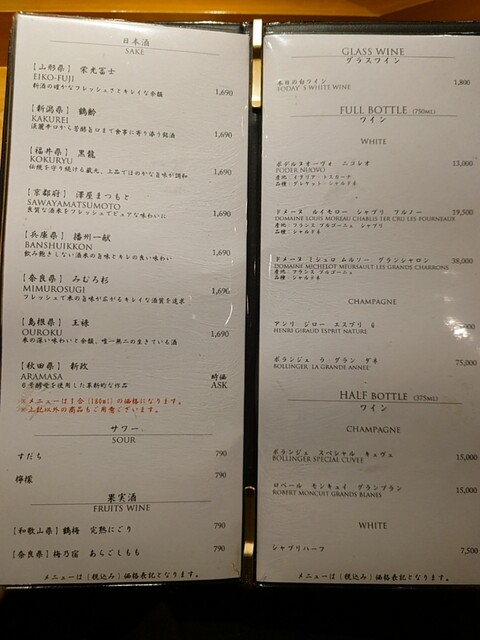 日本酒
SAKE
【山形県】 栄光冨士
EIKO-FUJI
新酒の確かなフレッシュさとキレイな余韻
1,690
【新潟県】 鶴齢
KAKUREI
淡麗辛口から芳醇旨口まで食事に寄り添う銘酒
1,690
【福井県】 黒龍
KOKURYU
伝統を守り続ける蔵元、上品でほのかな旨味が調和
1,690
【京都府】 澤屋まつもと
SAWAYAMATSUMOTO
良質な酒米をフレッシュでピュアな味わいに
1,690
【兵庫県】 播州一献
BANSHUIKKON
飲み飽きしない酒米の旨味とキレの良い味わい
1,690
【奈良県】 みむろ杉
MIMUROSUGI
フレッシュで米の旨味が広がるキレイな酒質を追求
1,690
【島根県】 王祿
OUROKU
米の深い味わいと余韻、唯一無二の生きている酒
1,690
【秋田県】 新政
ARAMASA
6号酵母を使用した革新的な作品
時価
ASK
※メニューは1合（180ml）の価格になります。
※上記以外の商品もご用意ございます。
サワー
SOUR
すだち
790
檸檬
790
果実酒
FRUITS WINE
【和歌山県】鶴梅 完熟にごり
790
【奈良県】梅乃宿 あらごしもも
790
メニューは（税込み）価格表記となります。
GLASS WINE
グラスワイン
本日の白ワイン
TODAY'S WHITE WINE
1,800
FULL BOTTLE (750ML)
ワイン
WHITE
ポデルヌオーヴォ ニコレオ
PODER NUOVO
産地：イタリア・トスカーナ
品種：グレケット・シャルドネ
13,000
ドメーヌ ルイモロー シャブリ フルノー
DOMAINE LOUIS MOREAU CHABLIS 1ER CRU LES FOURNEAUX
産地：フランス ブルゴーニュ シャブリ
品種：シャルドネ
19,500
ドメーヌ ミシェロ ムルソー グランシャロン
DOMAINS MICHELOT MEURSAULT LES GRANDS CHARRONS
産地：フランス ブルゴーニュ
品種：シャルドネ
38,000
CHAMPAGNE
アンリ ジロー エスプリ
HENRI GIRAUD ESPRIT NATURE
ボランジェ ラ・グラン ダネ
BOLLINGER, LA GRANDE ANNEE
75,000
HALF BOTTLE (375ML)
ワイン
CHAMPAGNE
ボランジェ スペシャル キュヴェ
BOLLINGER SPECIAL CUVEE
15,000
ロベール モンキュイ グランブラン
ROBERT MONCUIT GRANDS BLANES
15,000
WHITE
シャブリハーフ
7,500
メニューは（税込み）価格表記となります。